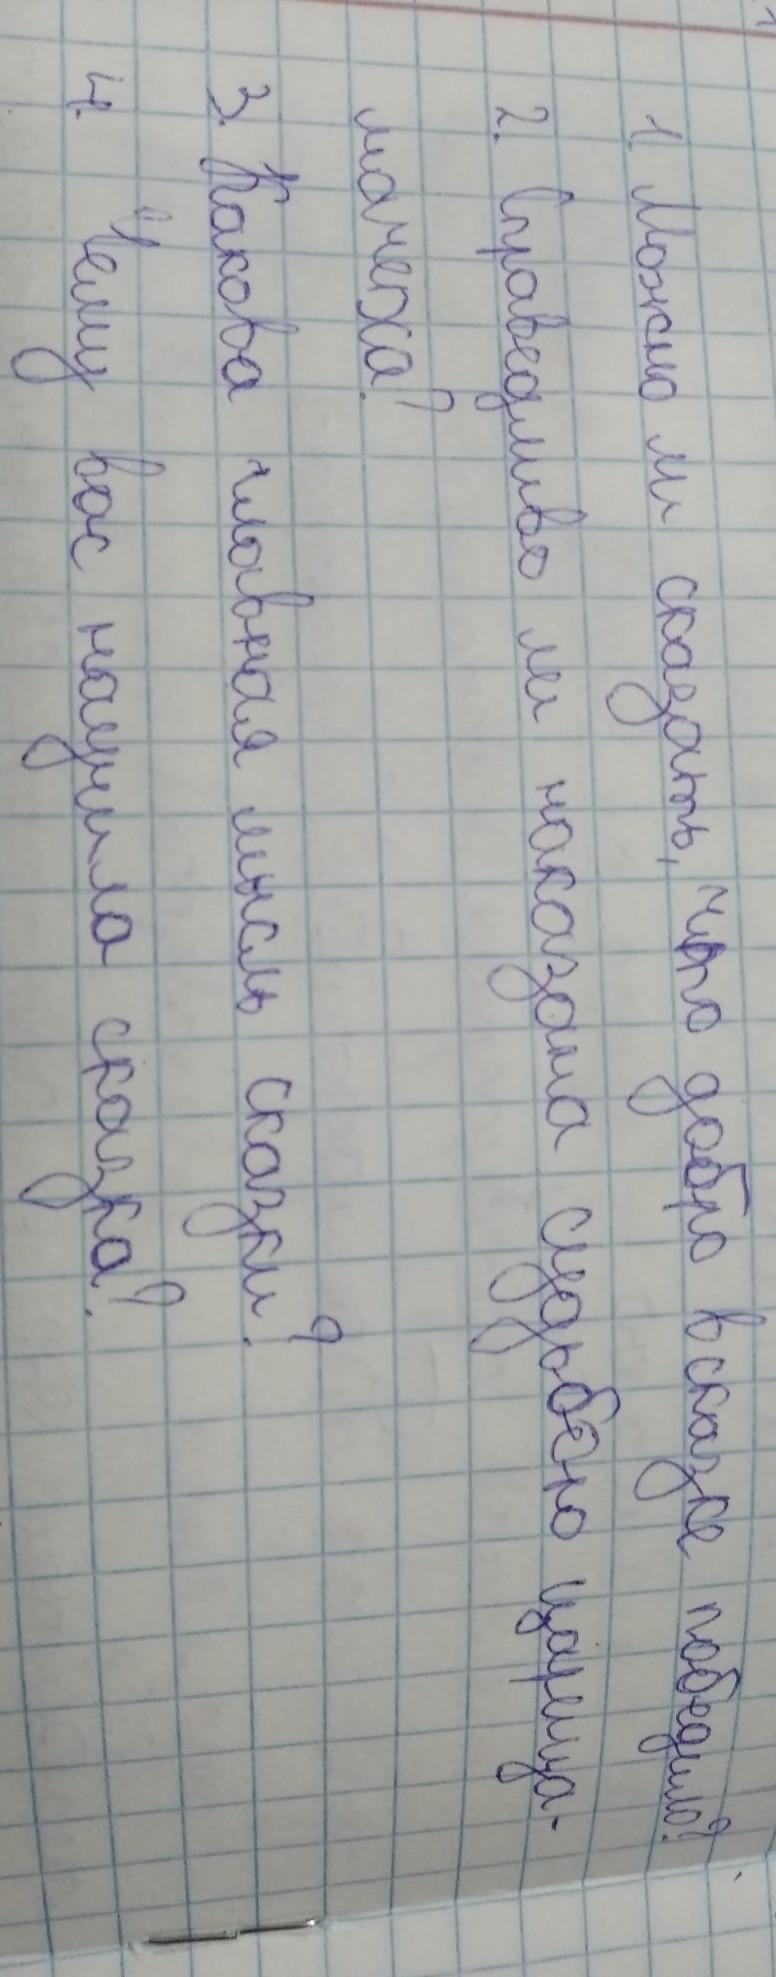 1. Можно ли сказать, что добро в сказке победило?
2. Справедливо ли наказана судьбою царица-
мачеха?
3. Какова главная мысль сказки?
4. Чему вас научила сказка?